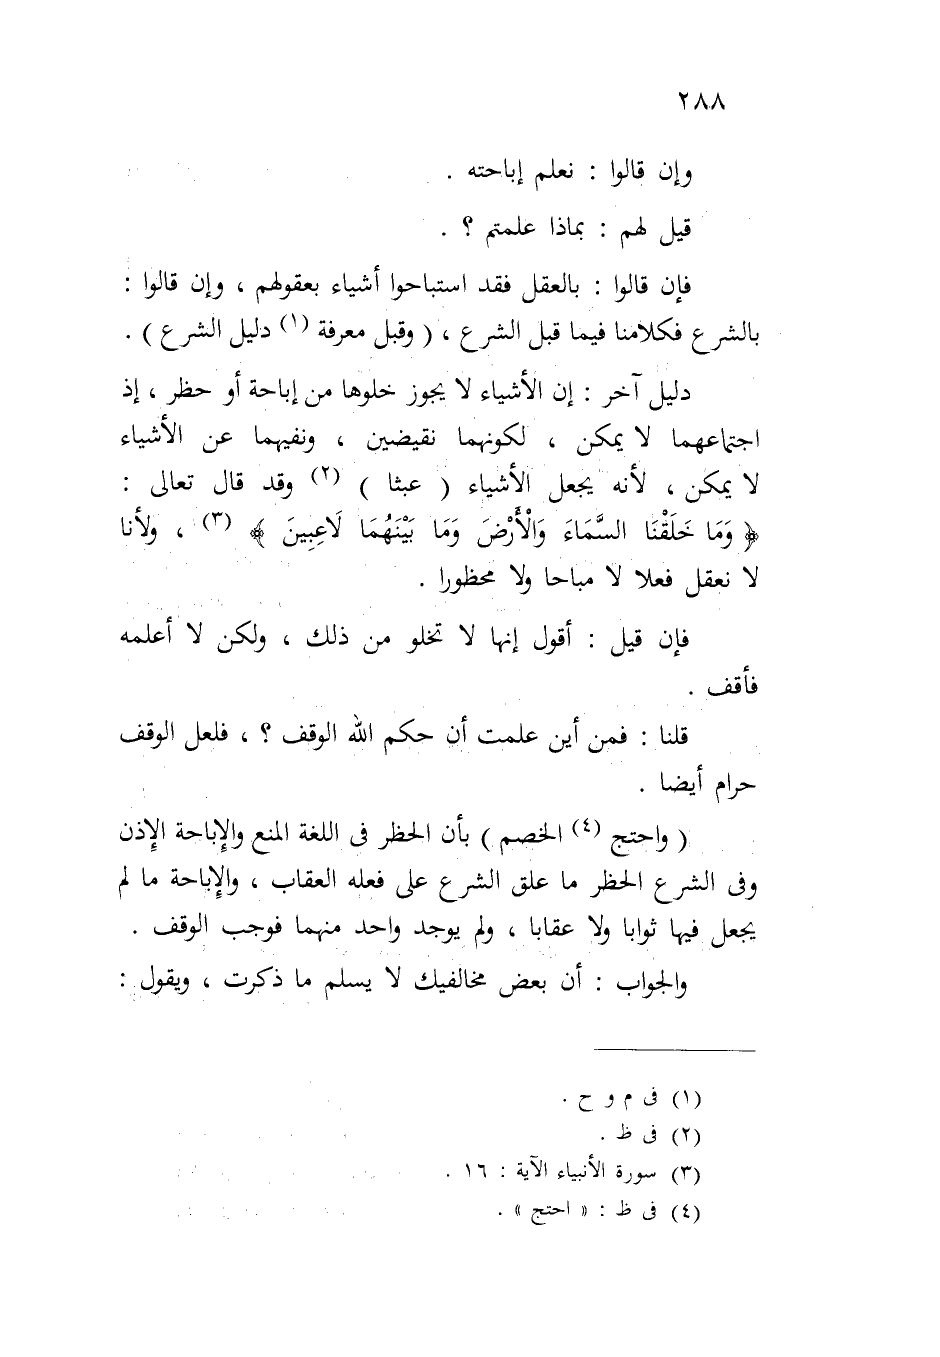 ٢٨٨
وإن قالوا : نعلم إباحته .
قيل لهم : بماذا علمتم ؟ .
فإن قالوا : بالعقل فقد استباحوا أشياء بعقولهم ، وإن قالوا :
بالشرع فكلامنا فيما قبل الشرع ، ( وقبل معرفة (١) دليل الشرع ) .
دليل آخر : إن الأشياء لا يجوز خلوها من إباحة أو حظر ، إذ
اجتماعهما لا يمكن ، لكونهما نقيضين ، ونفيهما عن الأشياء
لا يمكن ، لأنه يجعل الأشياء ( عبثا ) (٢) وقد قال تعالى :
﴿ وَمَا خَلَقْنَا السَّمَاءَ وَالْأَرْضَ وَمَا بَيْنَهُمَا لَاعِبِينَ ﴾ (٣) ، ولأنا
لا نعقل فعلا لا مباحا ولا محظورا .
فإن قيل : أقول إنها لا تخلو من ذلك ، ولكن لا أعلمه
فأقف .
قلنا : فمن أين علمت أن حكم الله الوقف ؟ ، فلعل الوقف
حرام أيضا .
( واحتج (٤) الخصم ) بأن الحظر فى اللغة المنع والإباحة الإذن
وفى الشرع الحظر ما علق الشرع على فعله العقاب ، والإباحة ما لم
يجعل فيها ثوابا ولا عقابا ، ولم يوجد واحد منهما فوجب الوقف .
والجواب : أن بعض مخالفيك لا يسلم ما ذكرت ، ويقول :
(١) فى م و ح .
(٢) فى ظ .
(٣) سورة الأنبياء الآية : ١٦ .
(٤) فى ظ : « احتج » .